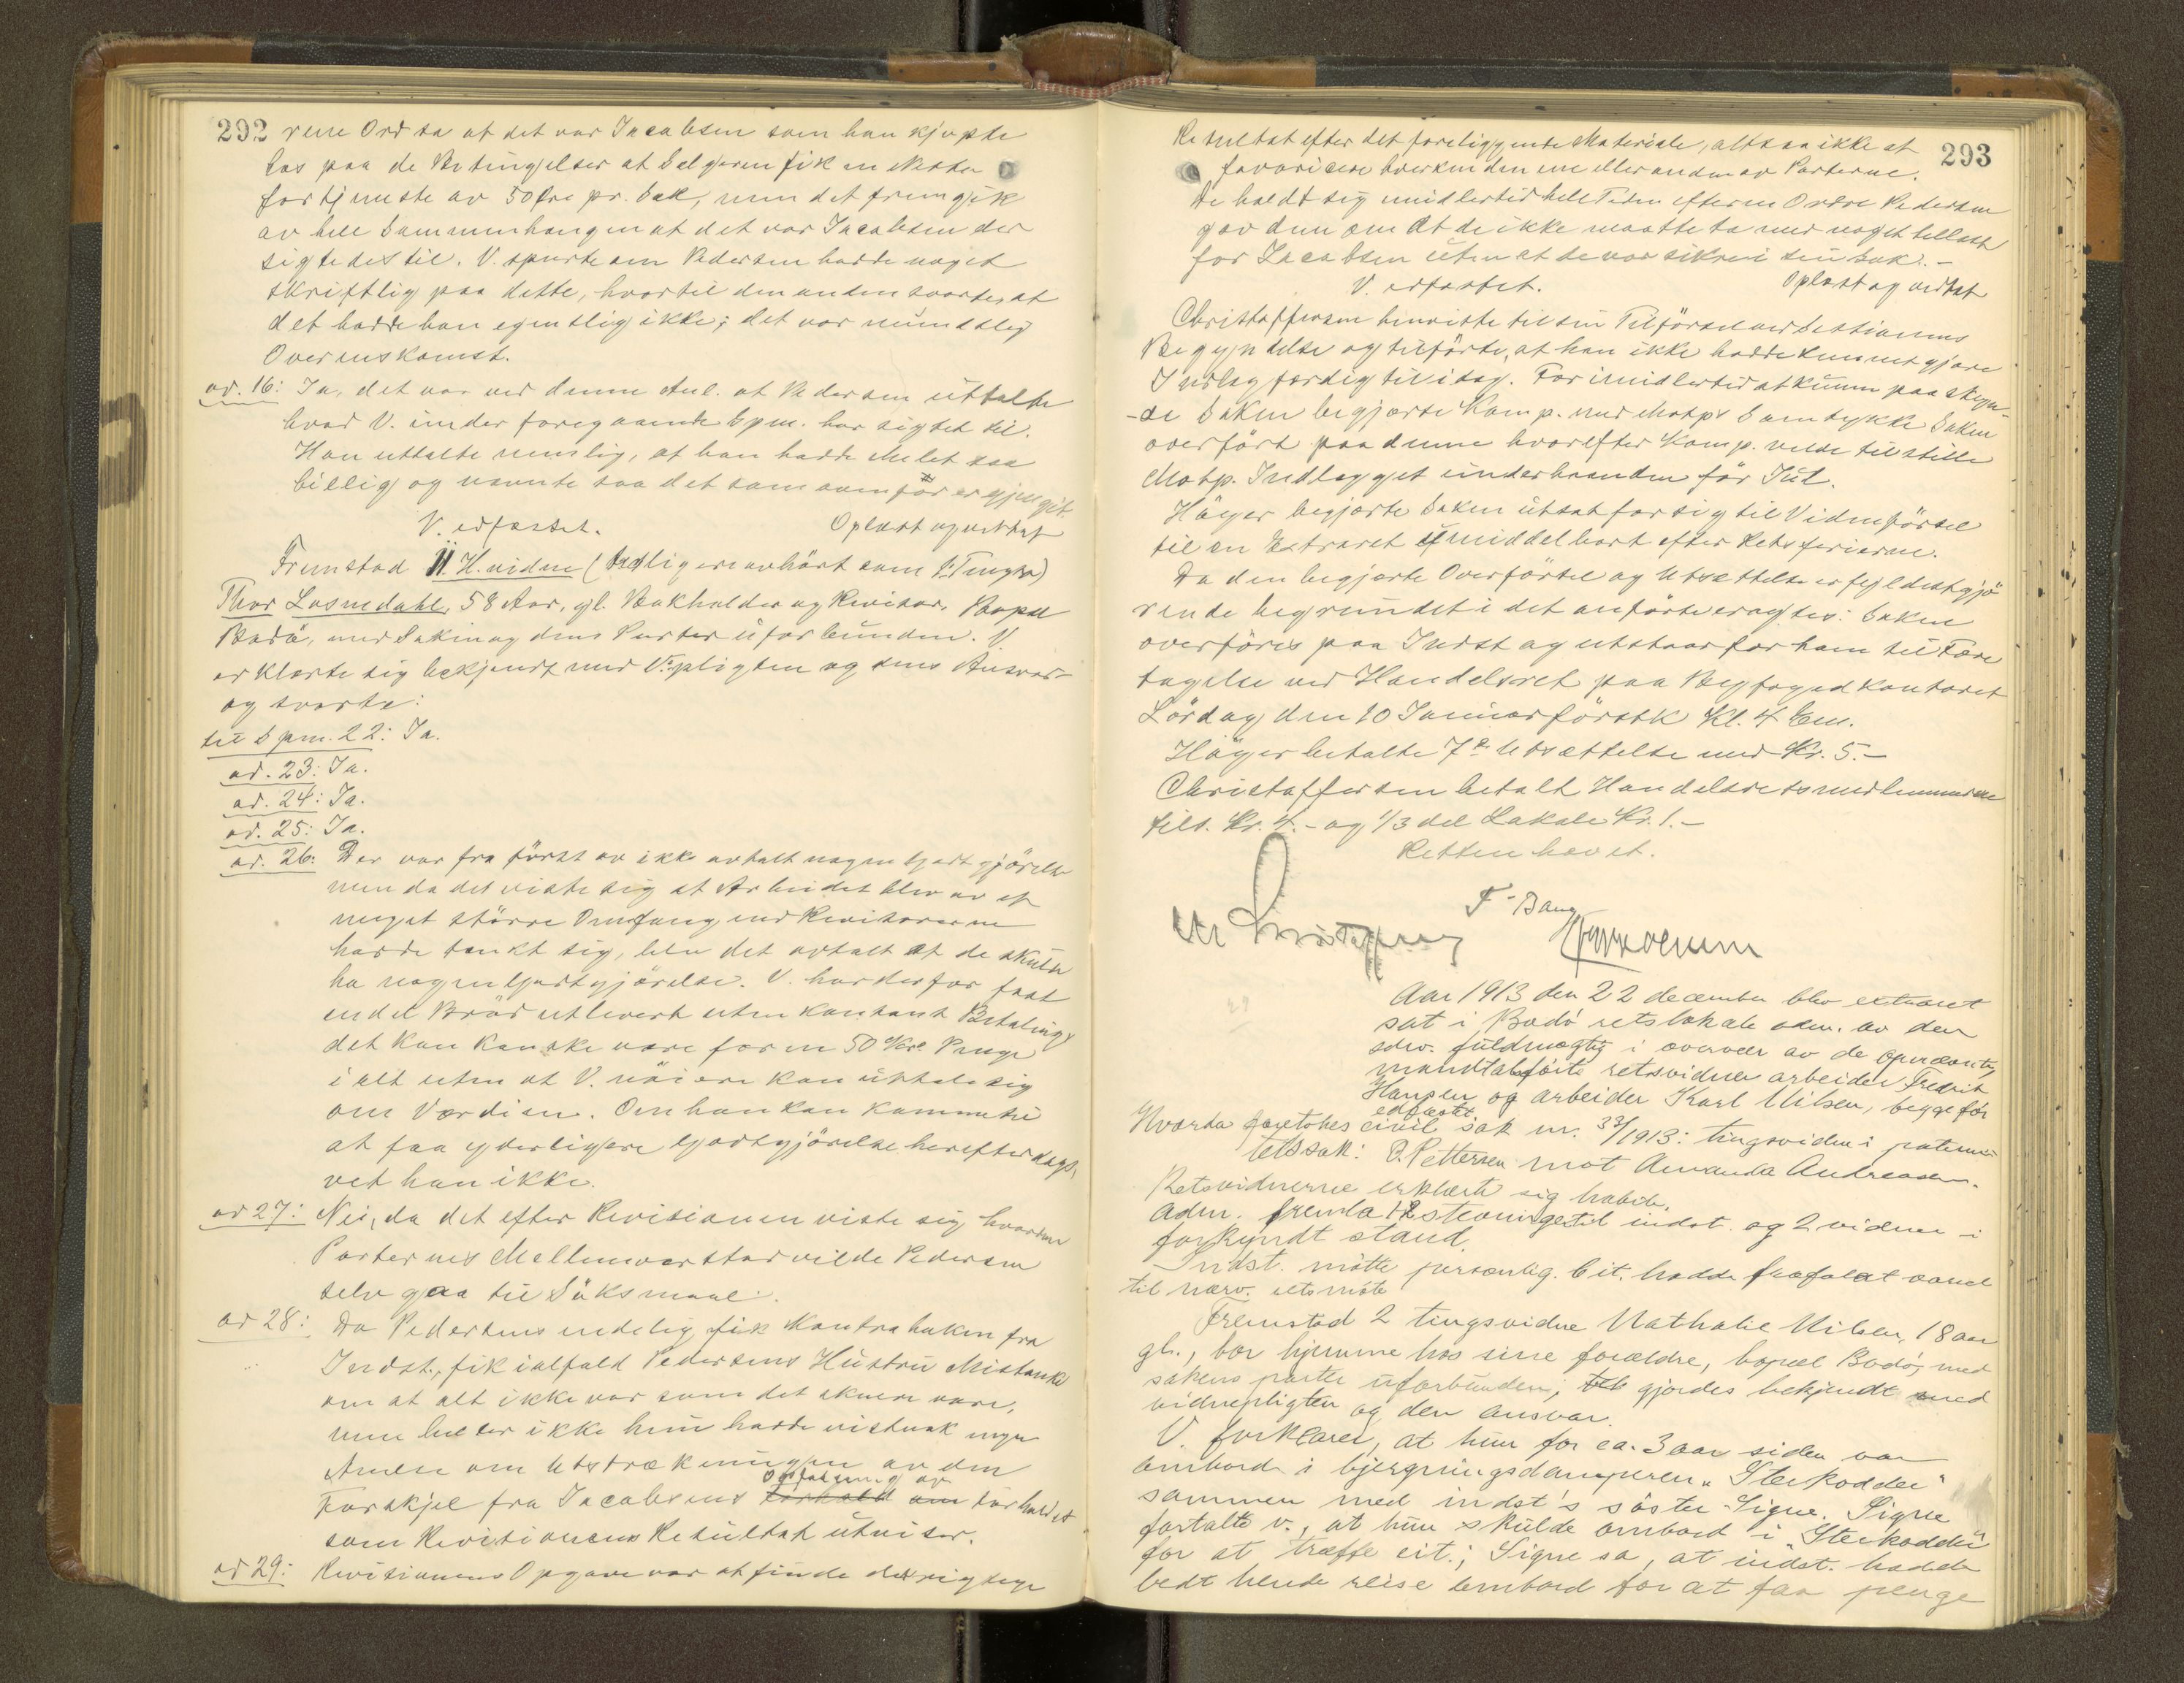 292 rene Ord sa at det var Jacobsen som han kjøpte
hos paa de Betingelser at Selgeren fik en Netto
fortjeneste av 50 Øre pr. Sæk, men det fremgik
av hele Sammenhængen at det var Jacobsen der
sigtedes til. V. spurte om Pedersen hadde noget
skriftlig paa dette, hvortil den anden svarte, at
det hadde han egentlig ikke; det var mundtlig
Overenskomst.
ad. 16: Ja, det var ved denne Anl. at Pedersen uttalte
hvad V. under foregaaende Spm. har sigtet til.
Han uttalte nemlig, at han hadde Melet saa
billig og nævnte saa det som ovenfor er gjengit.
V. edfæstet. Oplæst og vedtat
Fremstod II H. vidne (tidligere avhørt som Tingsv)
Thor Losnedahl, 58 Aar, gl. Bokholder og Revisor, Bopæl
Bodø, med Saken og dens Parter uforbunden. V.
erklærte sig bekjendt med V. pligten og dens Ansvar
og svarte:
til Spm. 22: Ja.
ad. 23: Ja.
ad. 24: Ja.
ad. 25: Ja.
ad. 26: Der var fra først av ikke avtalt nogen Godtgjørelse
men da det viste sig at Arbeidet blev av et
meget større Omfang end Revisorerne
hadde tænkt sig, blev det avtalt at de skulde
ha nogen Godtgjørelse. V. har derfor faat
endel Brød utlevert uten kontant Betaling,
det kan kanske være for en 50 Kr. Penge
i alt uten at V. nøiere kan uttale sig
om Værdien. Om han kan komme til
at faa yderligere Godtgjørelse herefterdags,
vet han ikke.
ad 27: Nei, da det efter Revisionen viste sig hvordan
Parternes Mellemvær stod vilde Pedersen
selv gaa til Søksmaal.
ad 28: Da Pedersens endelig fik Kontraboken fra
Indst., fik ialfald Pedersens Hustru Mistanke
om at alt ikke var som det skulde være,
men heller ikke hun hadde vistnok nogen
Anelse om Utstrækningen av den
Forskjel fra Jacobsens Opfatning av Forholdet
som Revisionens Resultat utviser.
ad 29: Revisionens Opgave var at finde det rigtige
293
Resultat efter det foreliggende Materiale, altsaa ikke at
favorisere hverken den ene eller anden av Parterne.
De holdt sig imidlertid hele Tiden efter en Ordre Pedersen
gav dem om at de ikke maatte ta med noget tillast
for Jacobsen uten at de var sikre i sin Sak. -
V. edfæstet. Oplæst og vedtat
Christoffersen henviste til sin Tilførsel ved Sessionens
Begyndelse og tilførte, at han ikke hadde kunnet gjøre
Indlæg færdig til idag. For imidlertid at kunne paaskyn-
-de Saken begjærte Komp. med Motp's Samtykke Saken
overført paa denne hvorefter Komp. vilde tilstille
Motp. Indlægget underhaanden før Jul.
Høyer begjærte Saken utsat for sig til Vidneførsel
til en Extraret umiddelbart efter Retsferierne.
Da den begjærte Overførsel og Utsættelse er fyldestgjø-
rende begrundet i det anførte eragtes: Saken
overføres paa Indst og utstaar for ham til Fore
tagelse ved Handelsret paa Byfogedkontoret
Lørdag den 10 Januar førstk Kl. 4 Em.
Høyer betalte 7de Utsættelse med Kr. 5.-
Christoffersen betalt Handelsretsmedlemmerne
tils. Kr. 4.- og 1/3 del Lokale Kr. 1.-
Retten hævet.
F. Bang
Aar 1913 den 22 december blev extraret
sat i Bodø retslokale adm. av den
edsv. fuldmægtig i overvær av de opnævnte
mandtalsførte retsvidner arbeider Fredrik
Hansen og arbeider Karl Nilsen, begge før
edfæstet.
Hvorda foretokes civil sak nr. 33/1913: tingsvidne i paterni-
tetssak: O. Pettersen mot Amanda Andreasen.
Retsvidnerne erklærte sig habile.
Adm. fremla stevninge til indst. og 2 vidner i
forkyndt stand.
Indst. møtte personlig. Cit. hadde frafaldt varsel
til nærv. retsmøte
Fremstod 2 tingsvidne Nathalie Nilsen, 18 aar
gl., bor hjemme hos sine forældre, bopæl Bodø, med
sakens parter uforbunden; gjordes bekjendt med
vidnepligten og den ansvar.
V. forklarer, at hun for ca. 3 aar siden var
ombord i bjergningsdamperen "Sterkodder"
sammen med indst's søster Signe. Signe
fortalte v., at hun skulde ombord i "Sterkodder"
for at træffe cit.; Signe sa, at indst. hadde
bedt hende reise ombord for at faa penge